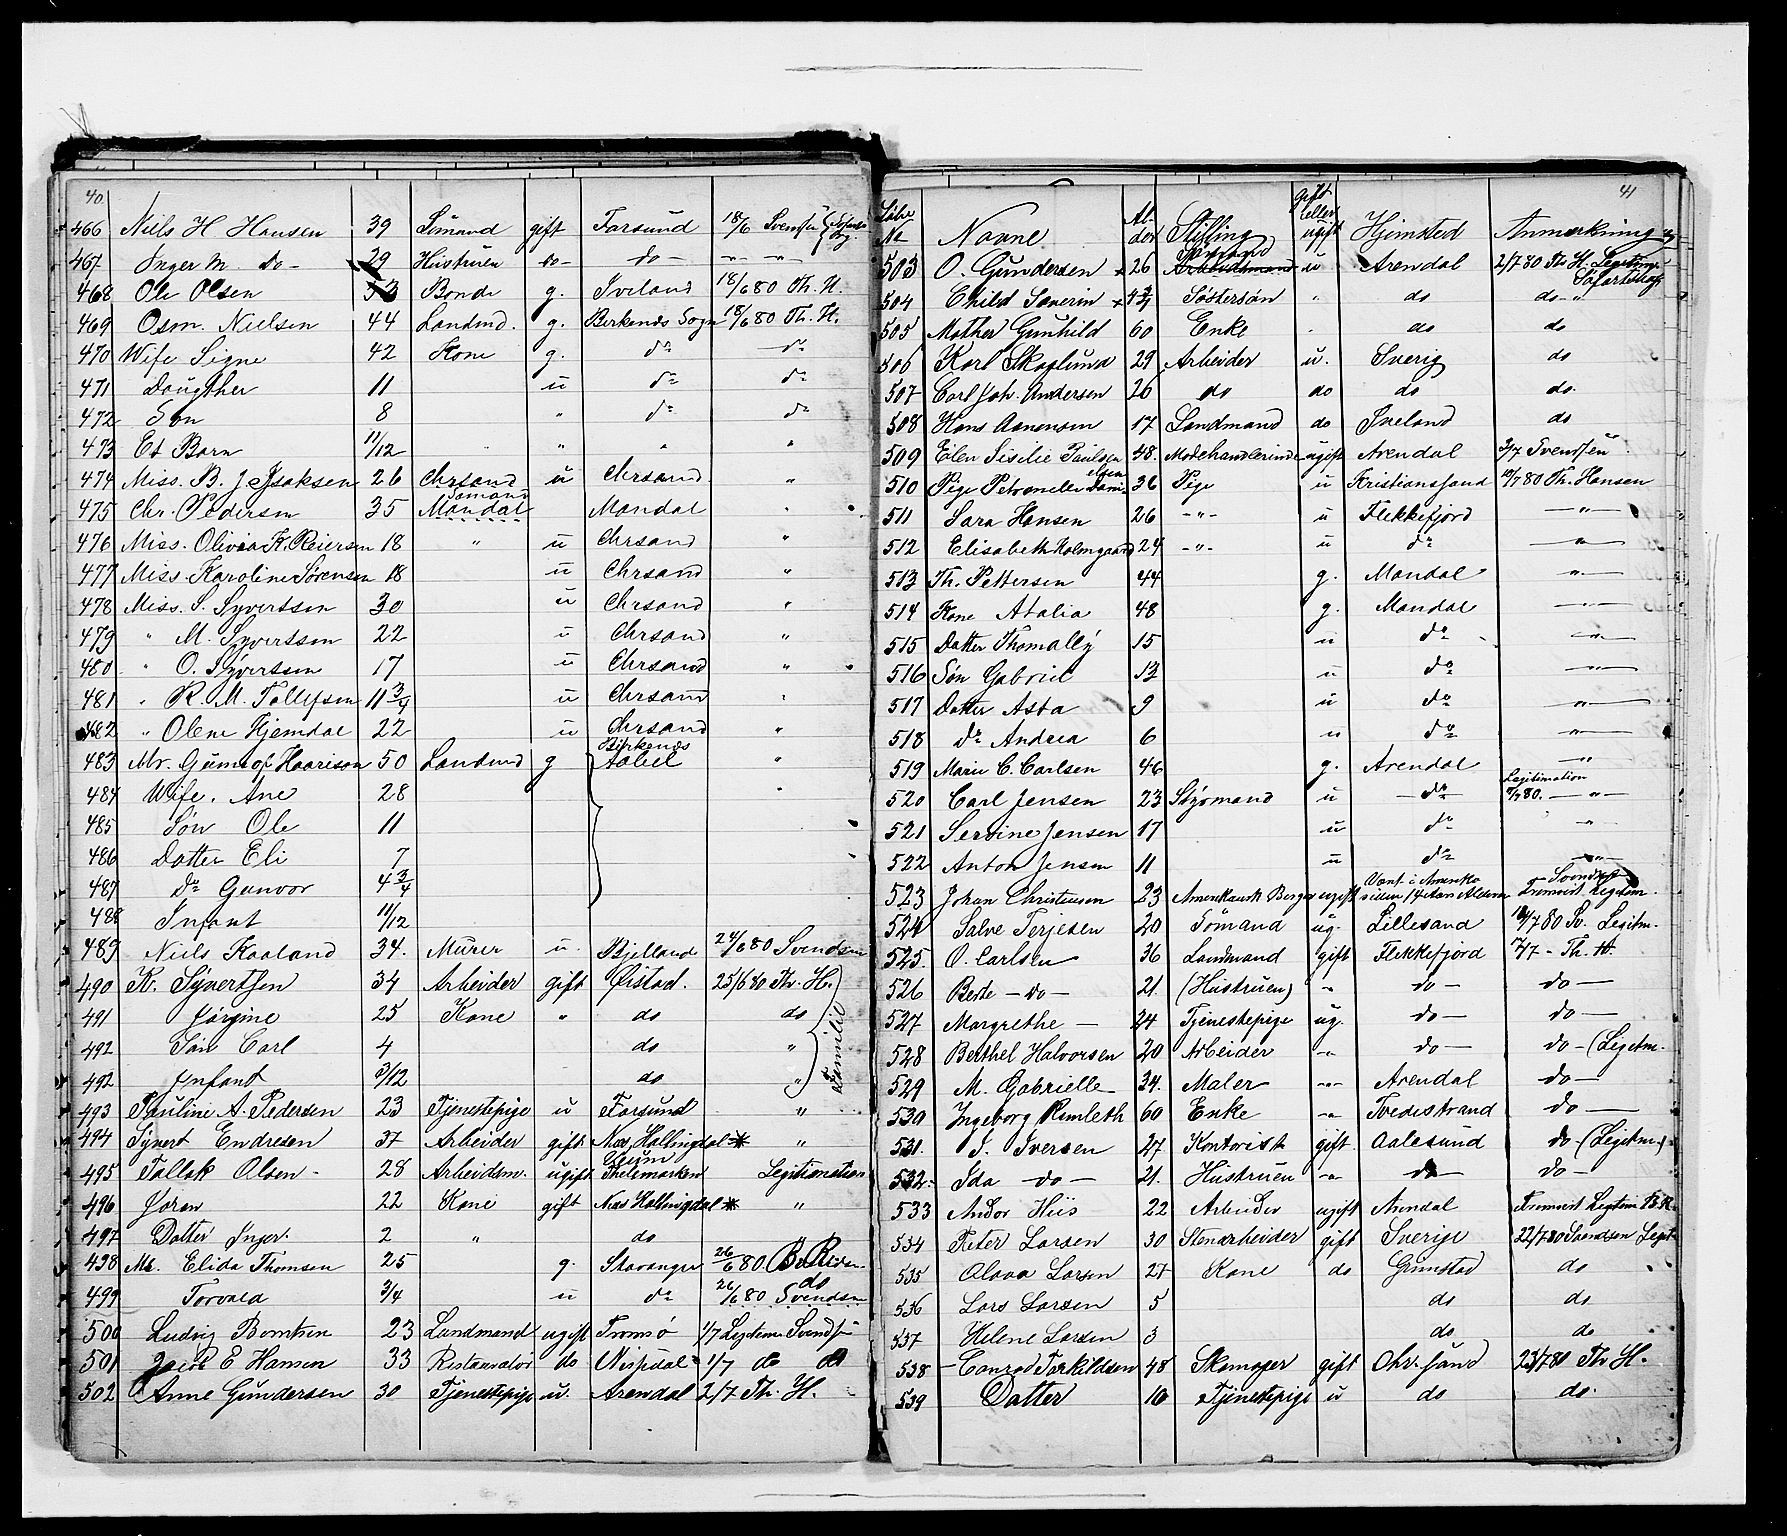 40
466 Niels H Hansen 39 Sømand gift Farsund 18/6 Svendsen
467 Inger M. do- 29 Hustruen do- do- -"- -"-
468 Ole Olsen 53 Bonde g. Iveland 18/6 80 Th. H.
469 Osm. Nielsen 44 Landmd. g. Birkenæs Sogn 18/6 80 Th. H.
470 Wife Signe 42 Kone g. do do
471 Daugther 11 u do do
472 Søn 8 " do do
473 Et Barn 11/12 " " "
474 Miss. B. J. Isaksen 26 Chrsand u Chrsand "
Sømand
475 Chr. Pedersen 35 Mandal Mandal "
476 Miss. Olivia K. Reiersen 18 " u Chrsand "
477 Miss. Karoline Sørensen 18 u Chrsand "
478 Miss. S. Syvertsen 30 u Chrsand "
479 " M. Syvertsen 22 u Chrsand "
480 " O. Syvertsen 17 u Chrsand "
481 " K. M. Tollefsen 11 3/4 u Chrsand "
482 " Olene Hjemdal 22 u Chrsand "
Birkenæs
483 Mr. Gunulf Haarison 50 Landmd g "
484 Wife. Ane 28 "
485 Søn Ole 11
486 Datter Eli 7
487 do Gunvor 4 3/4
488 Infant 11/12
489 Niels Kaaland 34. Murer u. Bjelland 24/6 80 Svendsen
490 K. Syvertsen 34 Arbeider gift Øistad. 25/6 80 Th. H.
491 Jørgine 25 Kone " do do
492 Søn Carl 4 do "
Familie
492 Infant 3/12 do "
493 Pauline A. Pedersen 23 Tjenestepige u Farsund "
494 Syvert Endresen 37 Arbeider gift Næs, Hallingdal * "
495 Tallak Olsen - 28 Arbeidsm. ugift Thelemarken Legitimation
496 Jøran 22 Kone gift Næs Hallingdal * "
497 Datter Inger. 2 " do
498 Ms. Elida Thomsen 25 g. Stavanger 26/6 80
do
499 Torvald 3/4 u do 26/6 80 Svendsen
500 Ludvig Berntsen 23 Landmand ugift Tromsø 1/7 Legitim Svendsen
501 Jacob E Hansen 33 Restauratør do 1/7 do do
502 Anne Gundersen 30 Tjenestepige u. Arendal 2/7 Th. H.
41
Løbe No Navne Alder Stilling gift eller ugift Hjemsted Anmærkning
Sømand
503 O. Gundersen 26 Arbeidsmand u Arendal 2/7 80 Th. H. Legitim.
504 Child Severin Søstersøn " do do- "
505 Mother Gunhild 60 Enke " do do
506 Karl Skoglund 29 Arbeider u. Sverig do
507 Carl Joh. Andersen 26 do do do do.
508 Hans Aanensen 17 Landmand do Iveland do
509 Elen Sisilie Paulsen 48. Modehandlerinde ugift Arendal 3/7 Svendsen
510 Pige Petronelle Danielsen 36 Pige u Kristianssand 10/7 80 Th. Hansen
511 Sara Hansen 26 -"- u Flekkefjord -"-
512 Elisabeth Holmgaard 24 -"- u do -"-
513 Th. Pettersen 44 g. Mandal -"-
514 Kone Atalia 48 g. Mandal -"-
515 Datter Thomally 15 u do -"-
516 Søn Gabriel 12 u do -"-
517 Datter Asta 9 u do -"-
518 do Andrea 6 u do -"-
519 Marie C. Carlsen 46 g. Arendal -"-
Legitimation
520 Carl Jensen 23 Styrmand u do -"-
521 Servine Jensen 17 u do -"-
522 Anton Jensen 11 u do -"-
Været i Amerika Svendsen
523 Johan Christensen 23 Amerikansk Borger ugift siden 14 Aars Alderen Fremvist Legitim.
524 Salve Terjesen 20 Sømand ug. Lillesand 10/7 80 Sv. Legitm.
525. O. Carlsen 36 Landmand gift Flekkefjord 7/7 - Th. H.
526 Berte - do - 21. (Hustruen) -"- do - do -
527 Margrethe - 24 Tjenestepige ug. do - do -
528 Berthel Halvorsen 20 Arbeider -"- do - do - (Legitm.
529 M. Gabrielle 34. Maler -"- Arendal do -
530 Ingeborg Remleth 60 Enke -"- Tvedestrand do -
531. J. Iversen 27 Kontorist gift. Aalesund do - (Legitm.)
532- Ida - do - 21. Hustruen -"- do - do -
533 Andor Hiis 22 Arbeider ugift Arendal Fremvist Legitim Th. H.
534 Peter Larsen 30 Stenarbeider gift Sverige 22/7 80 Svendsen Legit
535 Olava Larsen 27 Kone do Grimstad do
536 Lars Larsen 5 do do
537 Helene Larsen 3 do do
538 - Conrad Torkildsen 48 Skomager gift Chr.sand 23/7 80 Th H.
539 Datter 16 Tjenestepige u do do.